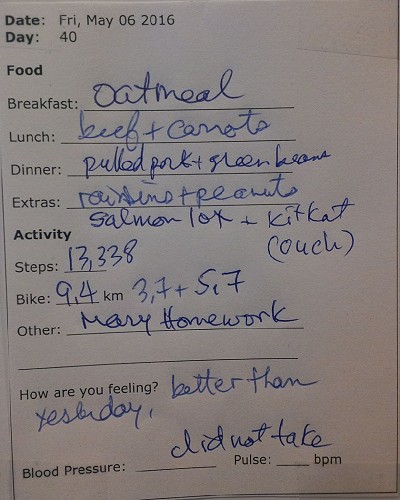 Date: Fri, May 06 2016
Day: 40
Food
Breakfast: oatmeal
Lunch: beef + carrots
Dinner: pulled pork + green beans
Extras: raisins + peanuts
salmon lox + kitkat
(ouch)
Activity
Steps: 13,338
Bike: 9,4 km 3,7 + 5,7
Other: Mary Homework
How are you feeling? better than
yesterday,
did not take
Blood Pressure: Pulse: bpm